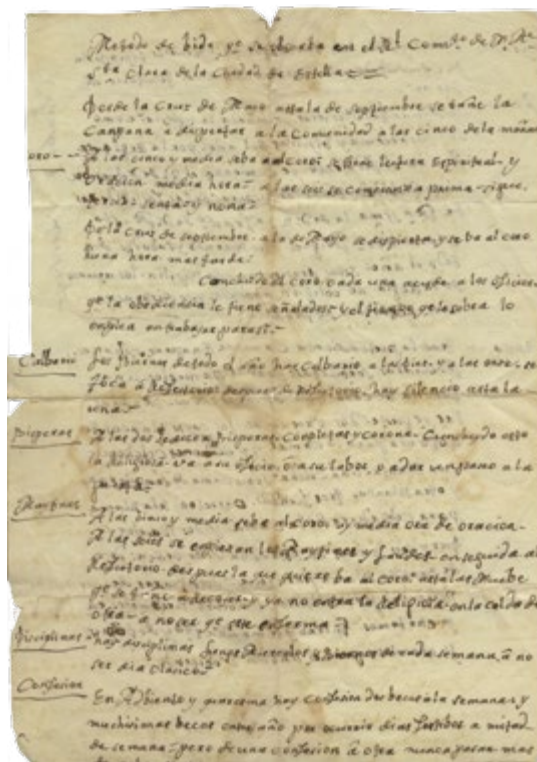 Metodo de bida qe. se obserba en el Rl. Combto. de
Sta Clara de la Ciudad de Estella
Desde la Cruz de Mayo asta la de septiembre se tañe la
Campana a dispertar a la Comunidad a las cinco de la mañana
Coro - A las cinco y media se ba al Coro se tiene lectura espiritual y
oracion media hora a las seis se comienza prima sigue
tercia sexta y nona
De la Cruz de septiembre a la de Mayo se dispierta y se ba al coro
una hora mas tarde
Concluido el coro cada una acude a los oficios
qe la obediencia le tiene señalados y el tiempo qe le sobra lo
emplea en trabajar para si
Calbario Los Biernes de todo el año hay Calbario a las diez y a las onze se
toca a Refectorio despues de Refectorio hay silencio asta la
una
Bisperas A las dos se dicen Bisperas Completas y corona Concluydo esto
la Religiosa va a su oficio o a su labor
Maytines
A las cinco y media se ba al coro hay media ora de oracion
A las seis se empiezan los Maytines y Laudes en seguida al
Refectorio despues la que quiere ba al coro asta las nuebe
qe se a recojer y ya no entra la Religiosa en la celda de
otra a no ser qe este enferma
Disciplinas hay disciplinas Lunes Miercoles y Biernes de cada semana a no
ser dia Clasico
Confesion
En Adbiento y quaresma hay Confesion dos beces a la semana y
muchisimas beces entre año por ocurrir dias festibos a mitad
de semana pero de una confesion a otra nunca pasan mas